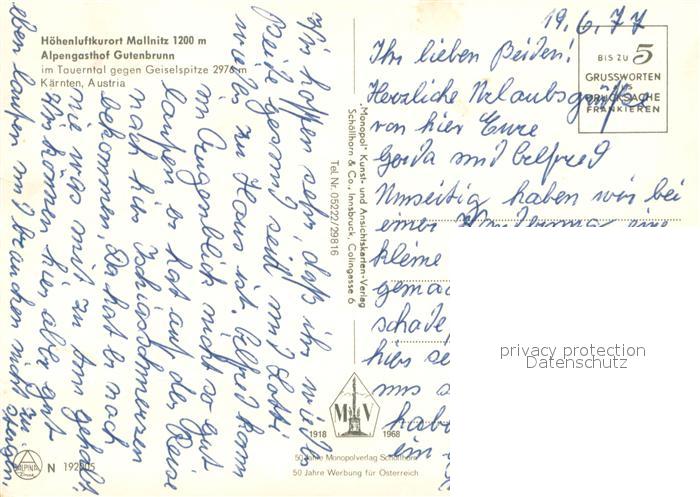 Höhenluftkurort Mallnitz 1200 m
Alpengasthof Gutenbrunn
im Tauerntal gegen Geiselspitze 2976 m
Kärnten, Austria
19.6.77
BIS ZU 5
GRUSSWORTEN
ALS
DRUCKSACHE
FRANKIEREN
Ihr lieben Beiden!
Herzliche Urlaubsgrüße
von hier Eure
Gerda und Alfred
Umseitig haben wir bei
einer Wanderung eine
kleine
gemac
schade
hier se
uns s
habe
im
Wir hoffen sehr, daß ihr
Beide gesund seid und Lotti
wieder zu Haus ist. Alfred kann
im Augenblick nicht so gut
laufen er hat auf der Reise
nach hier Ischiasschmerzen
bekommen. Da hat er noch
nie was mit zu tun gehabt.
Wir können hier aber gut
eben laufen und brauchen nicht zu steigen.
„Monopol" Kunst- und Ansichtskarten-Verlag
Schöllhorn & Co., Innsbruck, Colingasse 6
Tel. Nr. 05222/29816
M V
1918 1968
50 Jahre Monopolverlag Schöllhorn
50 Jahre Werbung für Österreich
ALPINA
N 192905
privacy protection
Datenschutz